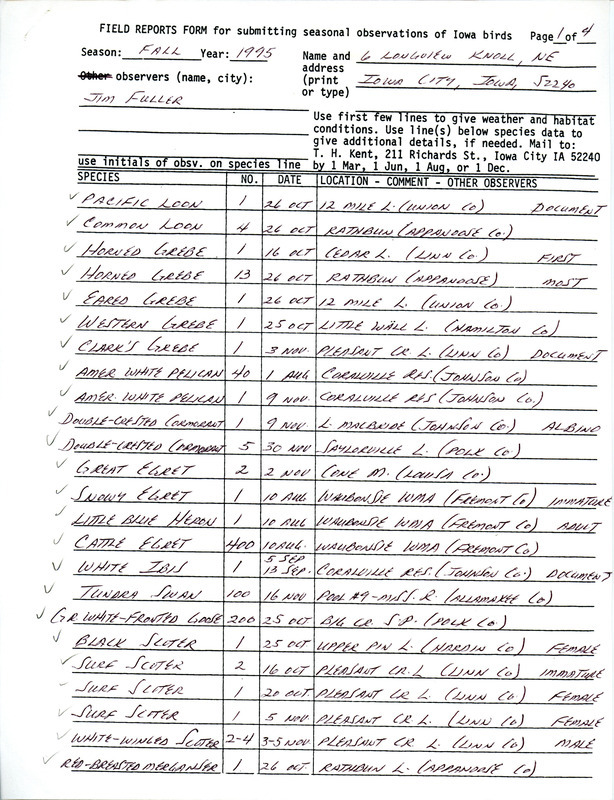 FIELD REPORTS FORM for submitting seasonal observations of Iowa birds Page 1 of 4
Season: FALL Year: 1995 Name and 6 LONGVIEW KNOLL, NE
address
Other observers (name, city): (print IOWA CITY, IOWA, 52240
or type)
JIM FULLER
Use first few lines to give weather and habitat
conditions. Use line(s) below species data to
give additional details, if needed. Mail to:
T. H. Kent, 211 Richards St., Iowa City IA 52240
use initials of obsv. on species line by 1 Mar, 1 Jun, 1 Aug, or 1 Dec.
SPECIES NO. DATE LOCATION - COMMENT - OTHER OBSERVERS
✓ PACIFIC LOON 1 26 OCT 12 MILE L. (UNION CO) DOCUMENT
✓ COMMON LOON 4 26 OCT RATHBUN (APPANOOSE CO.)
✓ HORNED GREBE 1 16 OCT CEDAR L. (LINN CO) FIRST
✓ HORNED GREBE 13 26 OCT RATHBUN (APPANOOSE) MOST
✓ EARED GREBE 1 26 OCT 12 MILE L. (UNION CO.)
✓ WESTERN GREBE 1 25 OCT LITTLE WALL L. (HAMILTON CO)
✓ CLARK'S GREBE 1 3 NOV. PLEASANT CR. L. (LINN CO) DOCUMENT
✓ AMER WHITE PELICAN 40 1 AUG CORALVILLE RES. (JOHNSON CO)
✓ AMER. WHITE PELICAN 1 9 NOV. CORALVILLE RES (JOHNSON CO.)
✓ DOUBLE-CRESTED CORMORANT 1 9 NOV L. MACBRIDE (JOHNSON CO.) ALBINO
✓ DOUBLE-CRESTED CORMORANT 5 30 NOV SAYLORVILLE L. (POLK CO)
✓ GREAT EGRET 2 2 NOV CONE M. (LOUISA CO.)
✓ SNOWY EGRET 1 10 AUG WAUBONSIE WMA (FREMONT CO) IMMATURE
✓ LITTLE BLUE HERON 1 10 AUG WAUBONSIE WMA (FREMONT CO) ADULT
✓ CATTLE EGRET 400 10 AUG. WAUBONSIE WMA (FREMONT CO)
5 SEP
✓ WHITE IBIS 1 13 SEP. CORALVILLE RES. (JOHNSON CO.) DOCUMENT
✓ TUNDRA SWAN 100 16 NOV POOL #9-MISS. R. (ALLAMAKEE CO)
✓ GR. WHITE-FRONTED GOOSE 200 25 OCT BIG CR. S.P. (POLK CO)
✓ BLACK SCOTER 1 25 OCT UPPER PIN L. (HARDIN CO) FEMALE
✓ SURF SCOTER 2 16 OCT PLEASANT CR. L (LINN CO) IMMATURE
✓ SURF SCOTER 1 20 OCT. PLEASANT CR L. (LINN CO) FEMALE
✓ SURF SCOTER 1 5 NOV PLEASANT CR L. (LINN CO) FEMALE
✓ WHITE-WINGED SCOTER 2-4 3-5 NOV. PLEASANT CR L. (LINN CO.) MALE
✓ RED-BREASTED MERGANSER 1 26 OCT. RATHBUN L. (APPANOOSE CO)